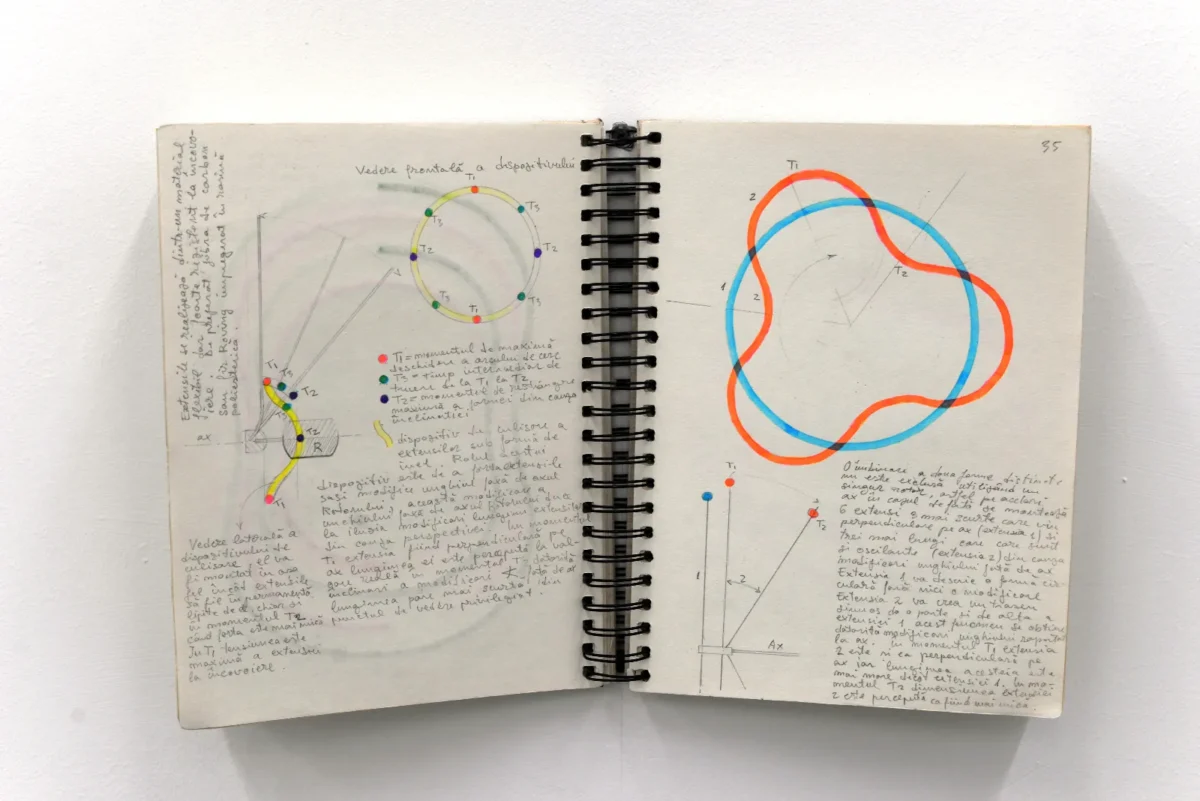 Extensiile se realizează dintr-un material
flexibil dar foarte rezistent la încovo-
iere. Din preparat fibra de carbon
sau fir Roving impregnat în rășină
poliesterică.
Vedere frontală a dispozitivului
T1
T3
T3
T2
T2
T3
T3
T1
T1 = momentul de maximă
deschidere a arcului de cerc
T3 = timp intermediar de
trecere de la T1 la T2
T2 = momentul de restrângere
maximă a formei din cauza
înclinației
T1
T3
T2
T3
ax
T2
R
T1
dispozitiv de culisare a
extensiilor sub formă de
inel. Rolul acestui
dispozitiv este de a forța extensiile
să-și modifice unghiul față de axul
Rotorului, această modificare a
unghiului față de axul rotorului duce
la iluzia modificări lungimi extensiei
din cauza perspectivei. În momentul
T1 extensia fiind perpendiculară pe
ax lungimea ei este percepută la val-
oare reală în momentul T2 datorită
înclinări a modificări față de ax
lungimea pare mai scurtă din
punctul de vedere privilegiat.
Vedere laterală a
dispozitivului de
culisare el va
fi montat în așa
fel încât extensiile
să fie în permanență
lipite de el chiar și
în momentul T2
când forța este mai mică
În T1 tensiunea este
maximă a extensiei
la încovoiere.
35
T1
2
T2
1
2
T1
2
T2
1
2
Ax
O îmbinare a două forme distincte
nu este exclusă utilizând un
singur rotor, astfel pe același
ax în cazul de față se montează
6 extensi 3 mai scurte care vin
perpendiculare pe ax (extensia 1) și
trei mai lungi care care sunt
și oscilante (extensia 2) din cauza
modificări unghiului față de ax
Extensia 1 va descrie o formă cir-
culară fără nici o modificare
Extensia 2 va crea un traseu
sinuos de o parte și de alta a
extensiei 1 acest fenomen se obține
datorită modificări unghiului raportat
la ax. În momentul T1 extensia
2 este și ea perpendiculară pe
ax iar lungimea acesteia este
mai mare decât extensiei 1. În mo-
mentul T2 dimensiunea extensiei
2 este percepută ca fiind mai mică.